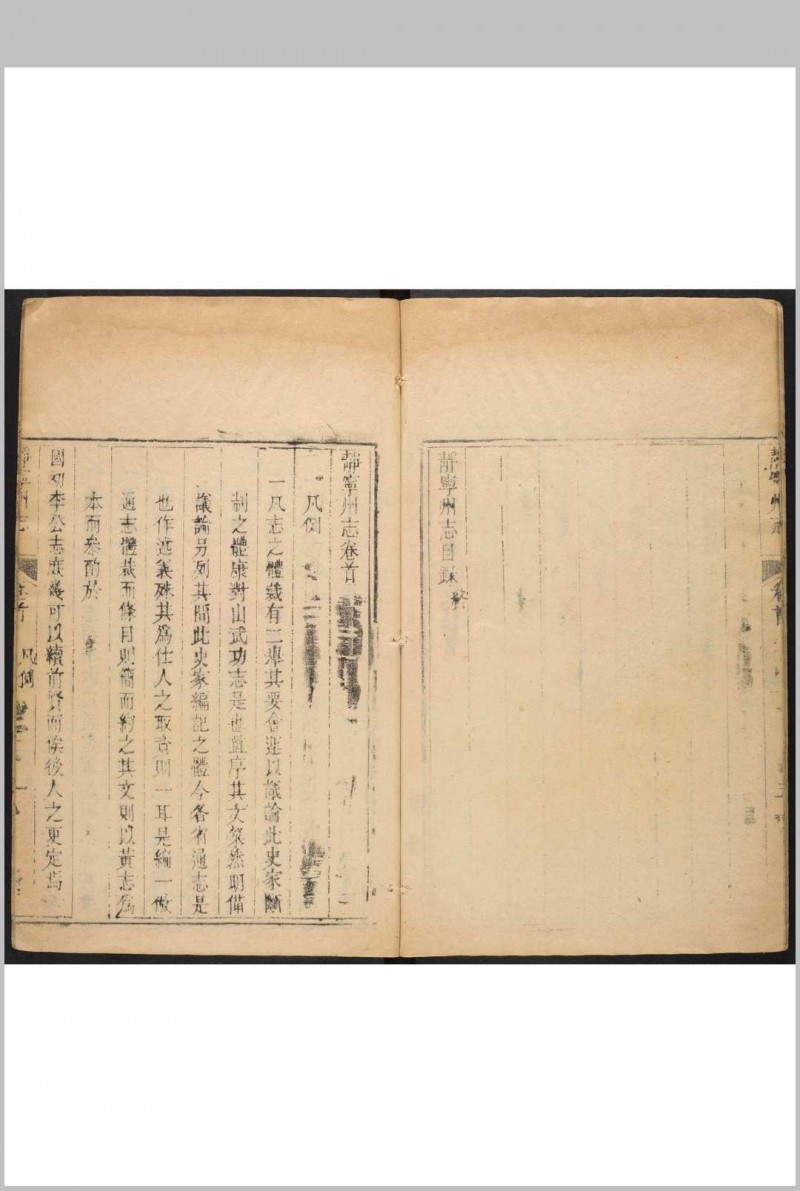 靜寧州志
卷首
靜寧州志目錄終
靜寧州志卷首
凡例
一凡志之體裁有二舉其要會進以議論此史家斷
制之體康對山武功志是也直序其文粲然明備
議論另列其間此史家編記之體今各省通志是
也作述義殊其為仕人之取資則一耳是編一倣
通志體裁而條目則簡而約之其文則以黃志為
本而參酌於
國初李公志庶幾可以續前賢而俟後人之更定焉
靜寧州志
卷首
凡例